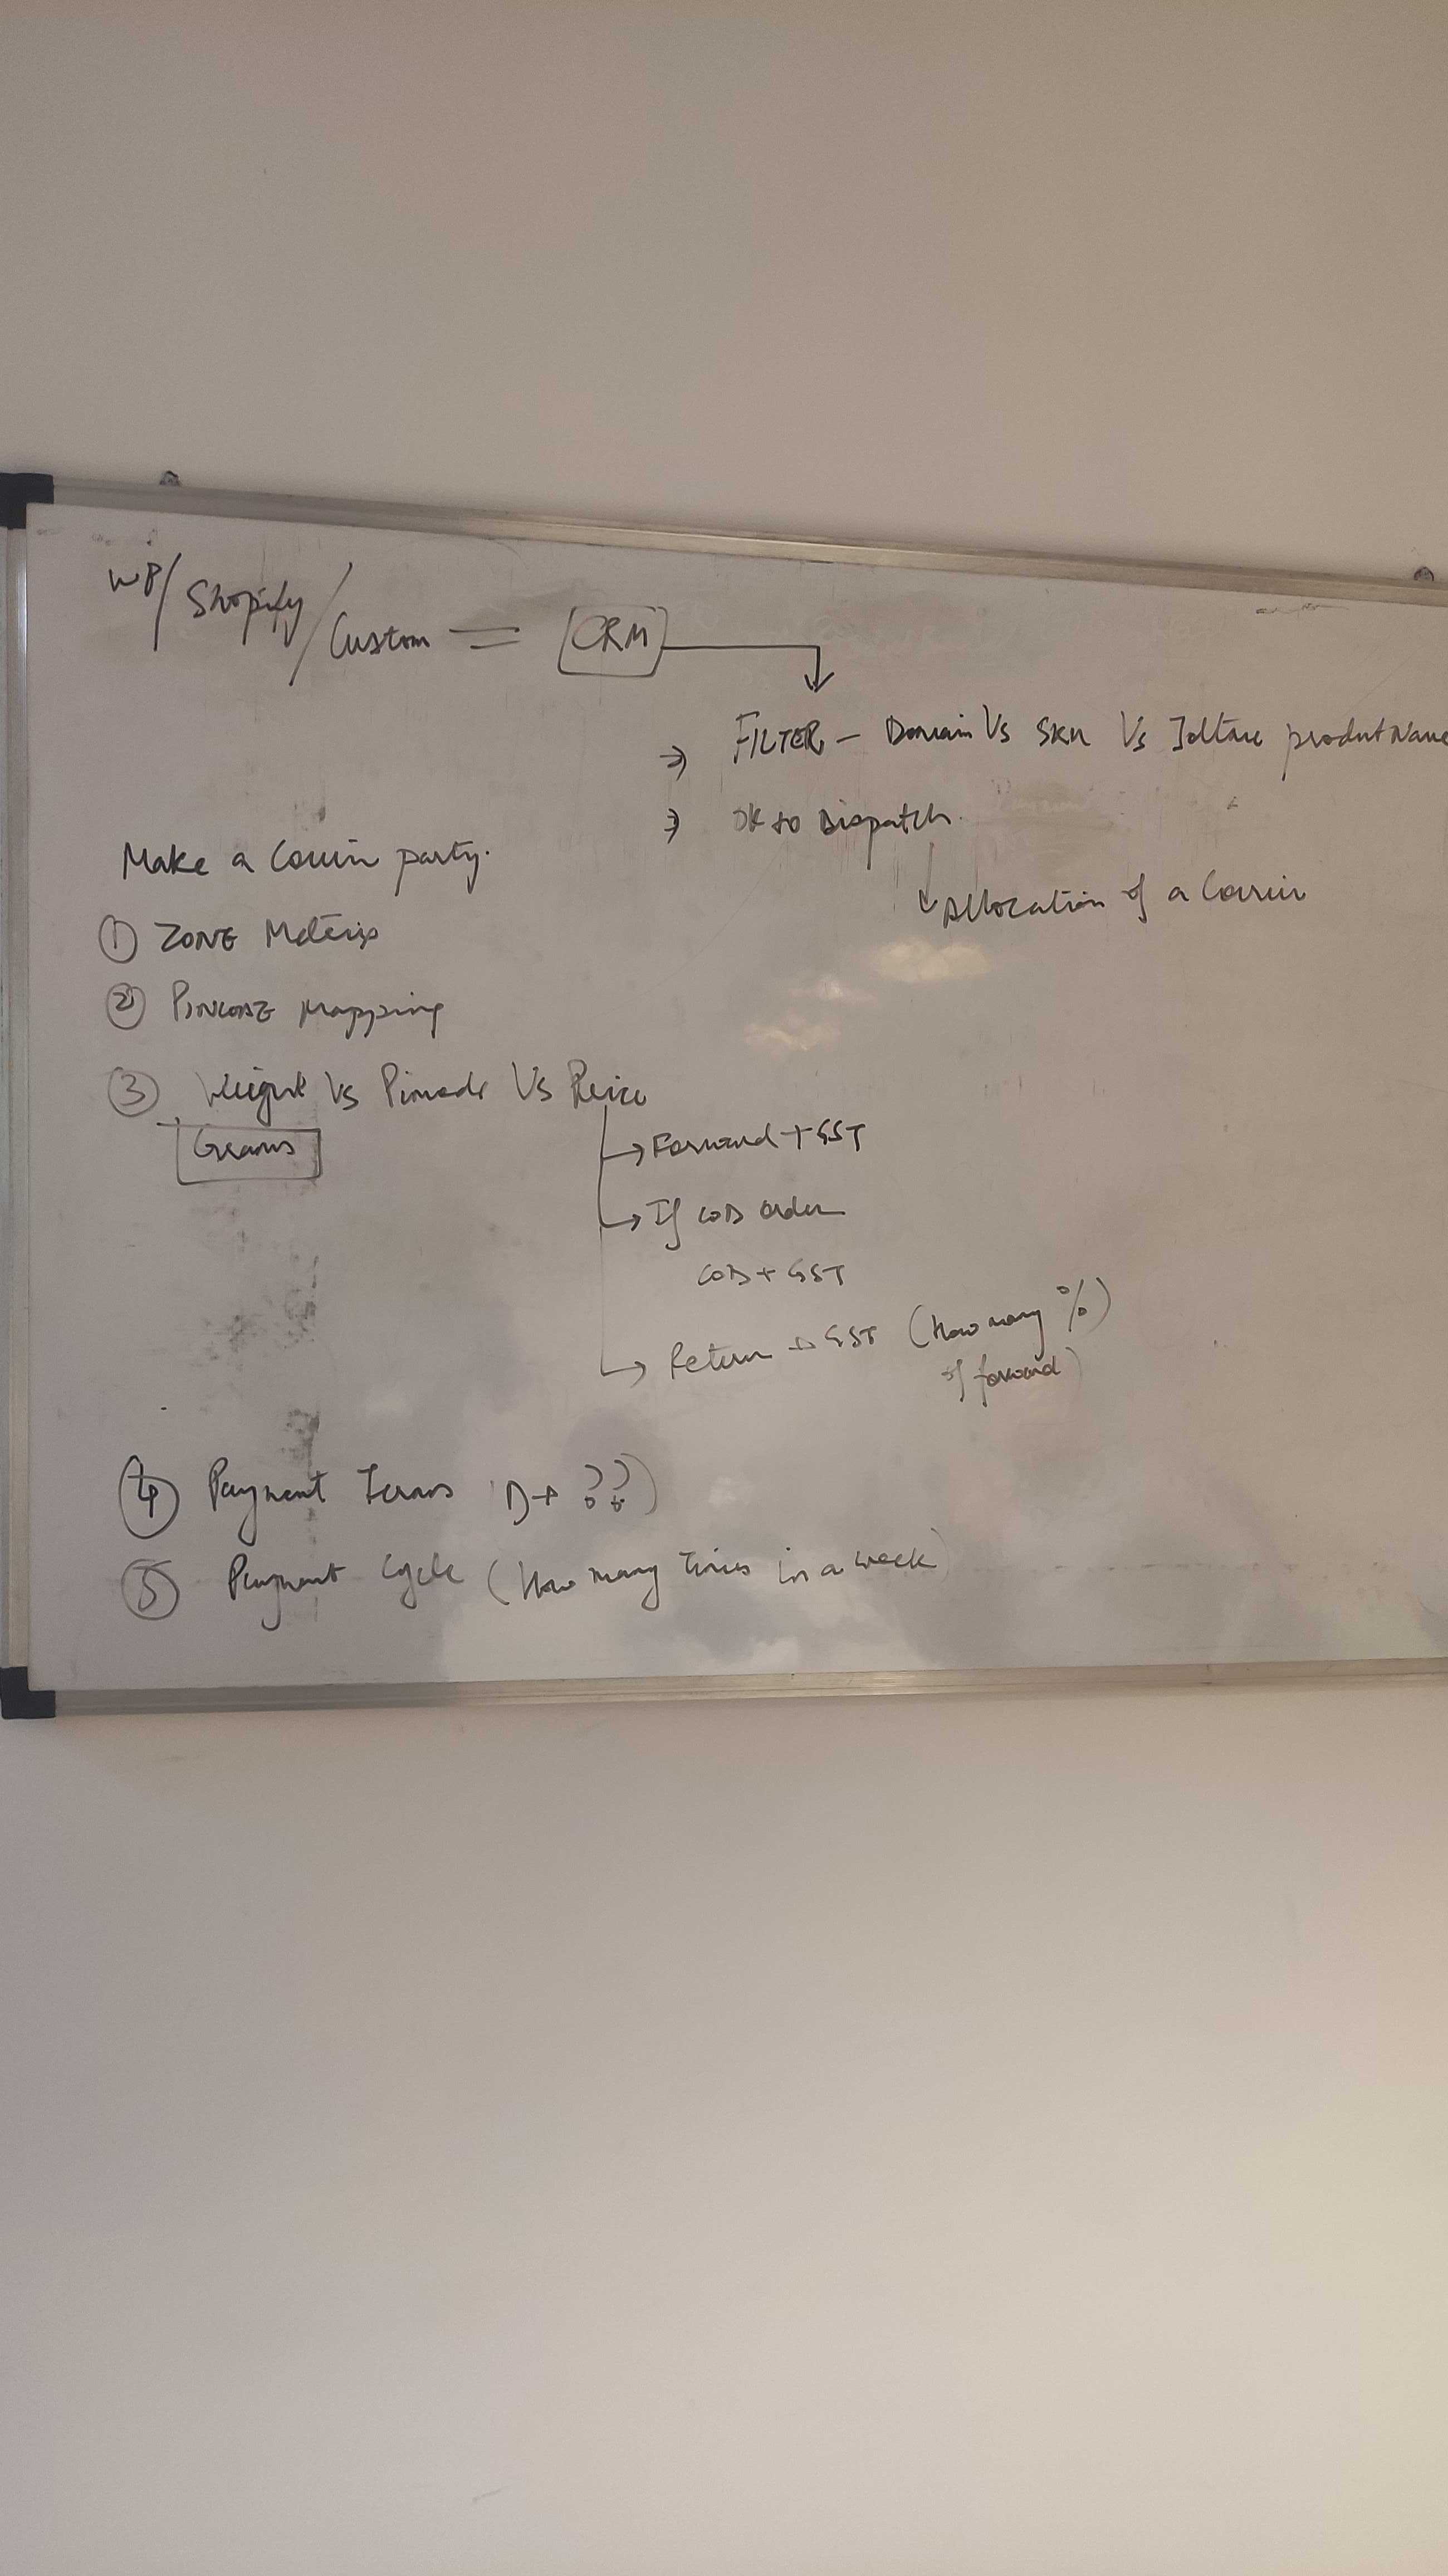 WP/ Shopify/ Custom = CRM
⇒ FILTER - Domain Vs SKU Vs product Name
⇒ OK to Dispatch.
Allocation of a Courier
Make a Courier party.
① ZONE Matrix
② PINCODE Mapping
③ Weight Vs Pincode Vs Price
Grams
→ Forward + GST
→ If COD order
COD + GST
→ Return + GST (How many %)
of forward)
④ Payment Terms D+ ??)
⑤ Payment Cycle (How many Times in a week)